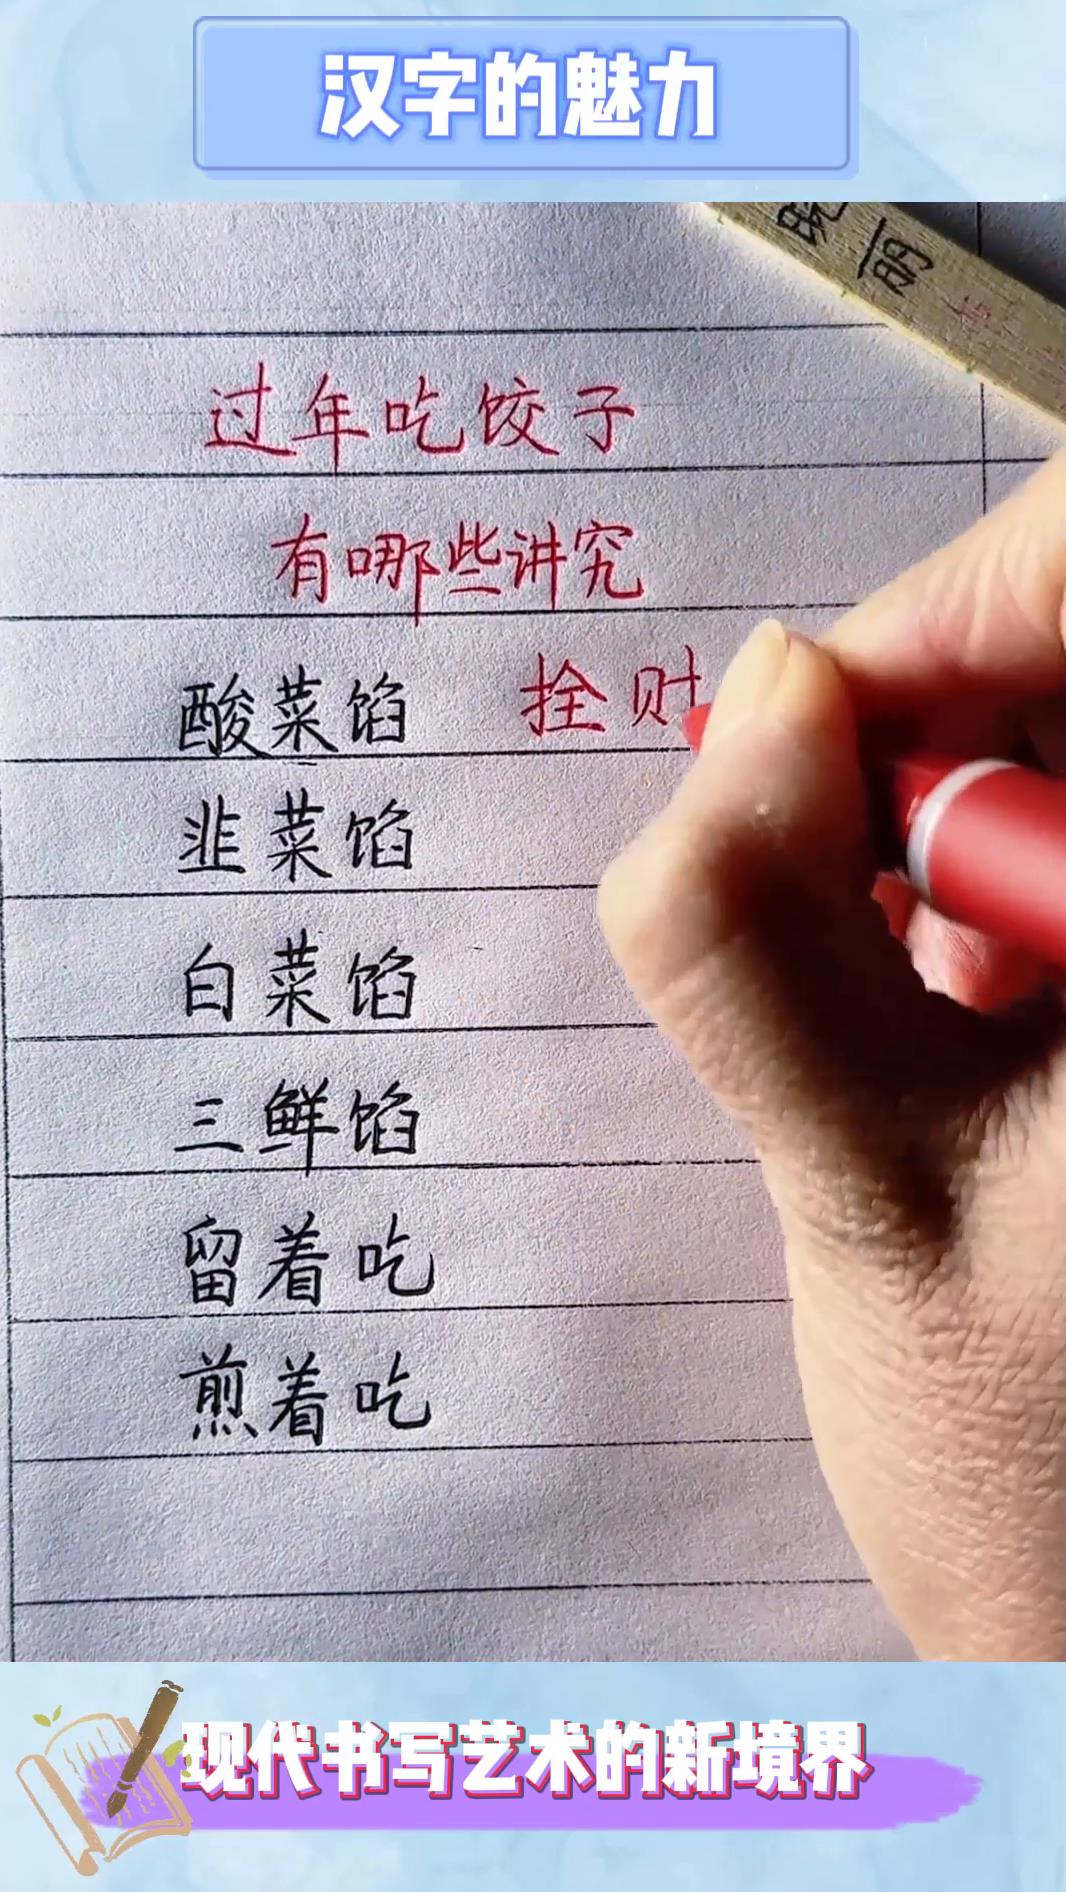 汉字的魅力
过年吃饺子
有哪些讲究
酸菜馅 拴财
韭菜馅
白菜馅
三鲜馅
留着吃
煎着吃
现代书写艺术的新境界